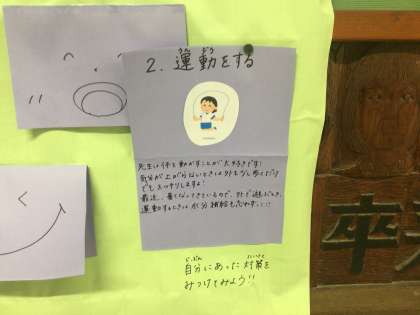 うん どう
2. 運動をする
先生は体を動かすことが大好きです!
気分が上がらないときは外を少し歩くだけ
でもスッキリしますよ!
最近、暑くなってきているので、外で遊んだり、
運動するときは水分補給も忘れずに!!
じぶん たいさく
自分にあった対策を
みつけてみよう!!
卒